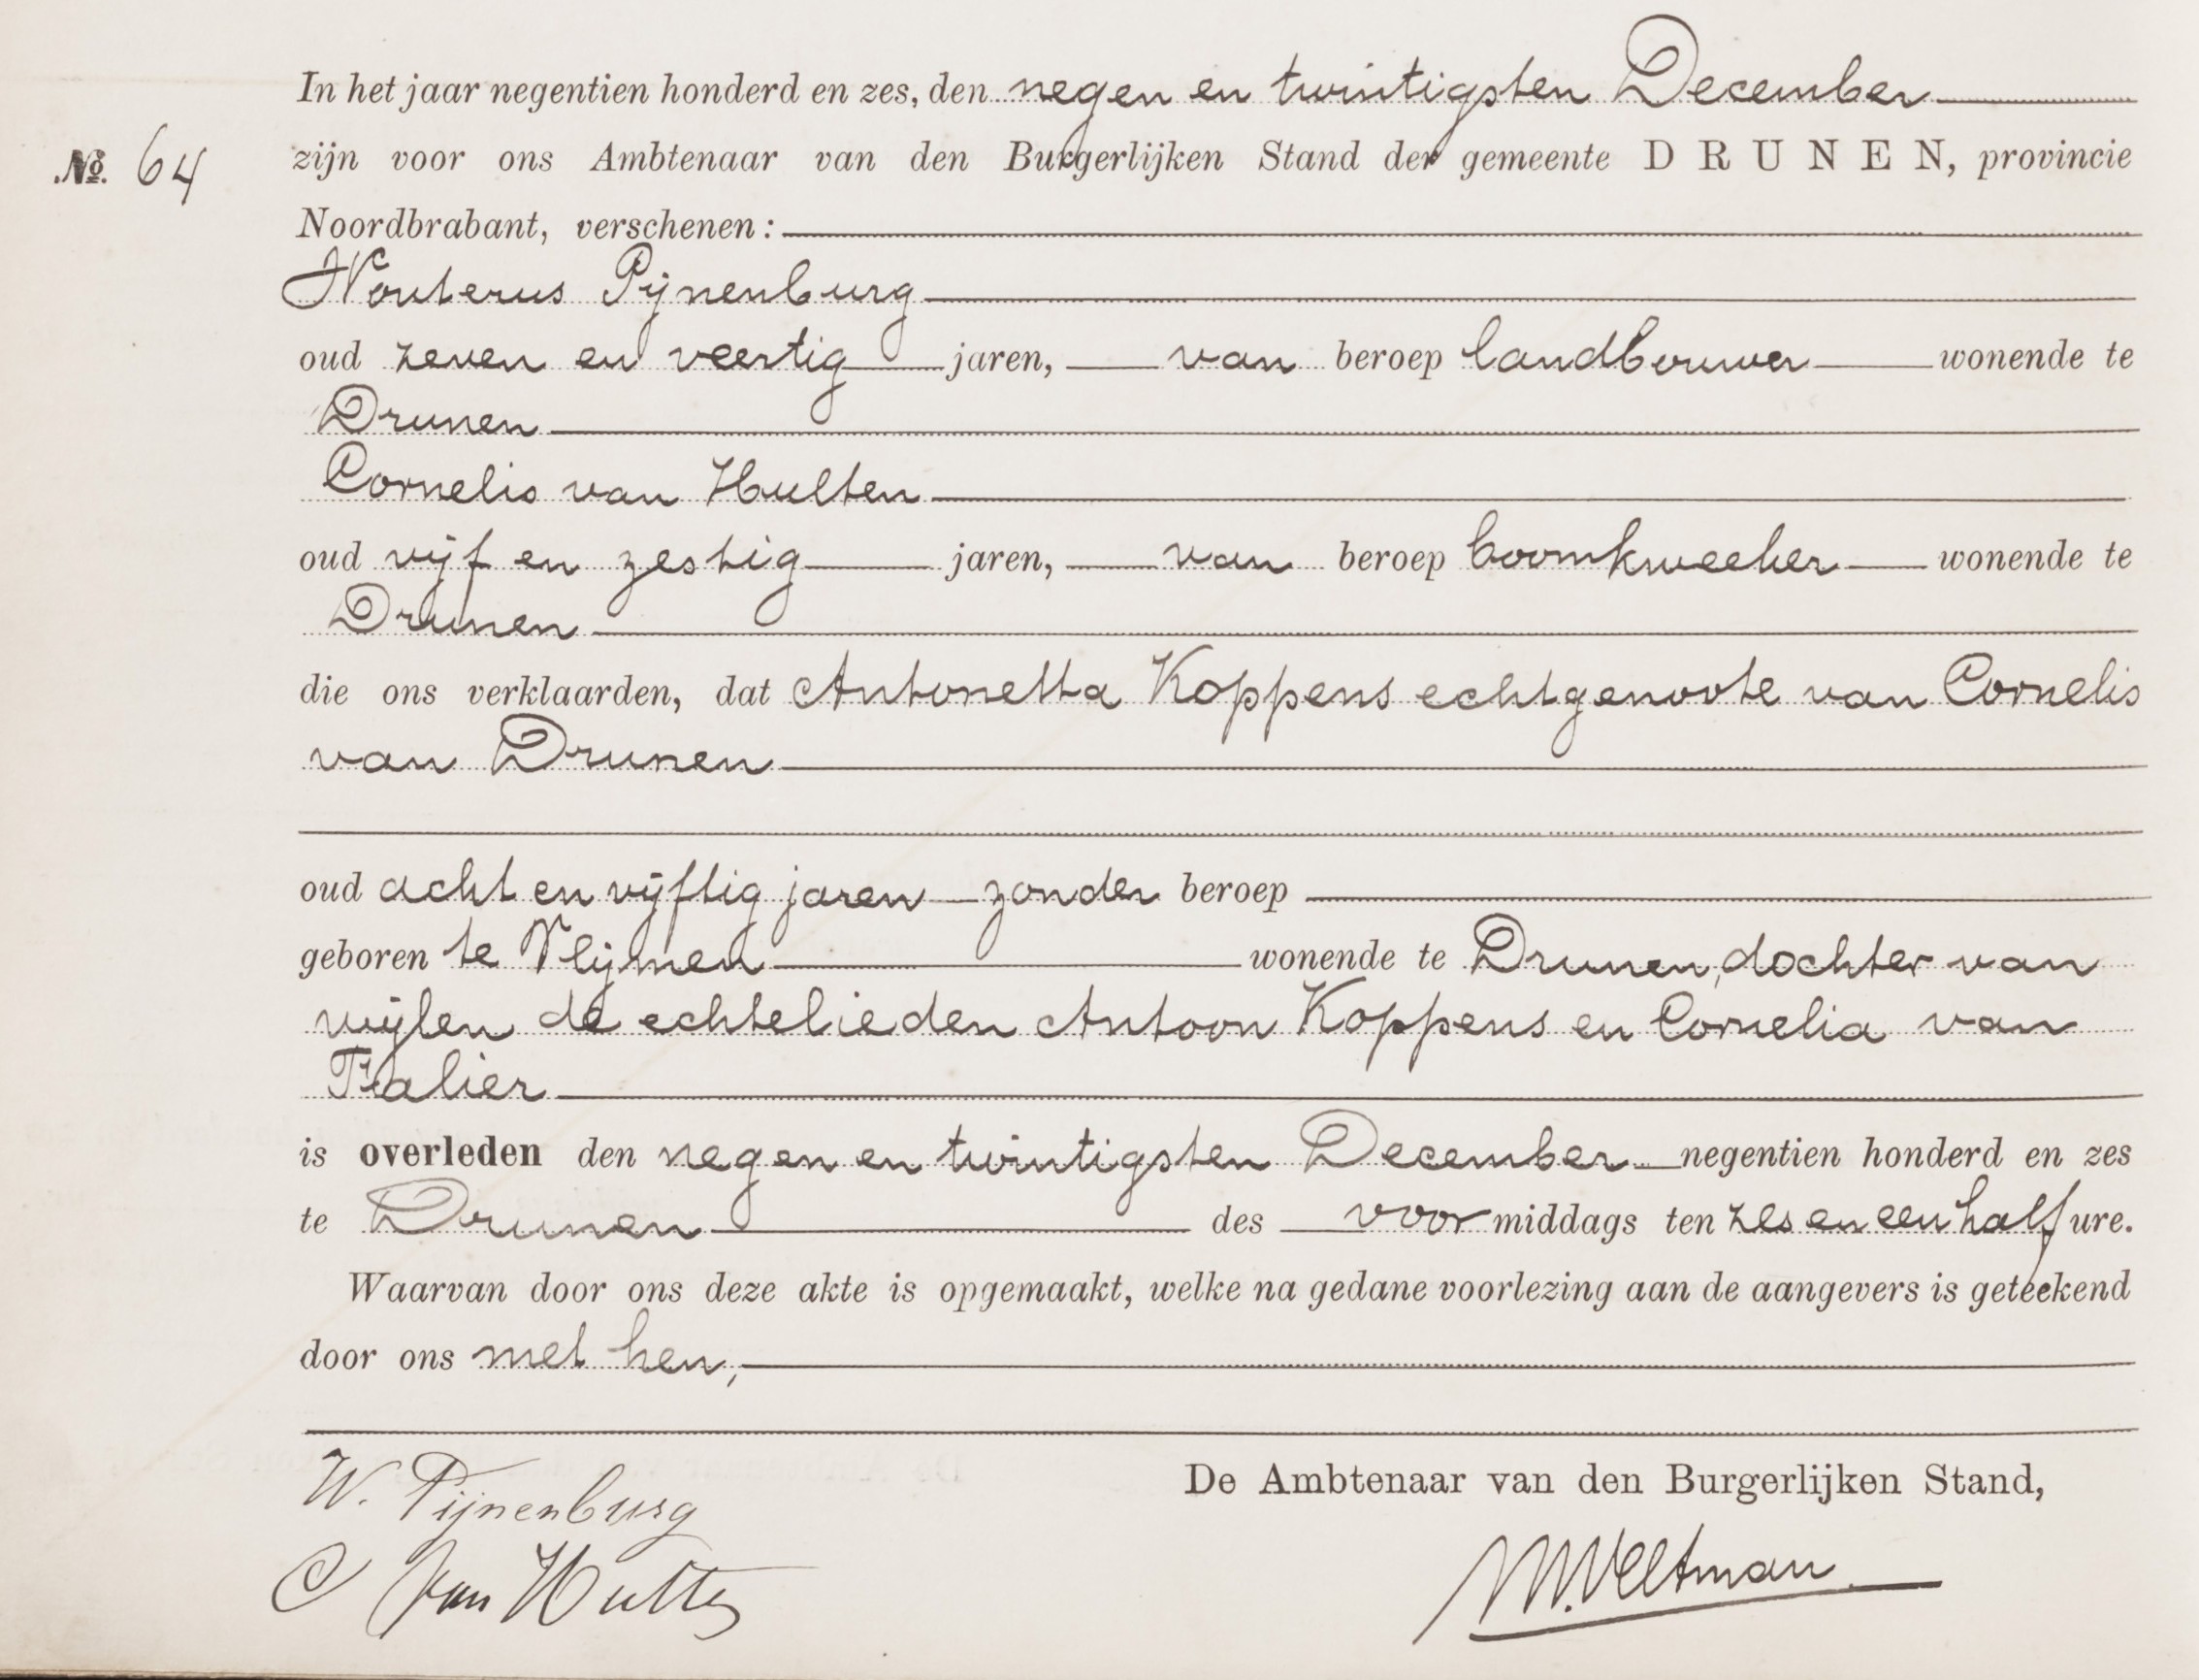 In het jaar negentien honderd en zes, den negen en twintigsten December
No. 64
zijn voor ons Ambtenaar van den Burgerlijken Stand der gemeente DRUNEN, provincie
Noordbrabant, verschenen:
Wouterus Pijnenburg
oud zeven en veertig jaren, van beroep landbouwer wonende te
Drunen
Cornelis van Hulten
oud vijf en zestig jaren, van beroep boomkweeker wonende te
Drunen
die ons verklaarden, dat Antonetta Koppens echtgenoote van Cornelis
van Drunen
oud acht en vijftig jaren zonder beroep
geboren te Vlijmen wonende te Drunen, dochter van
wijlen de echtelieden Antoon Koppens en Cornelia van
Falier
is overleden den negen en twintigsten December negentien honderd en zes
te Drunen des voormiddags ten zes en een half ure.
Waarvan door ons deze akte is opgemaakt, welke na gedane voorlezing aan de aangevers is geteekend
door ons met hen,
W. Pijnenburg
De Ambtenaar van den Burgerlijken Stand,
C van Hulten
M. Veltman